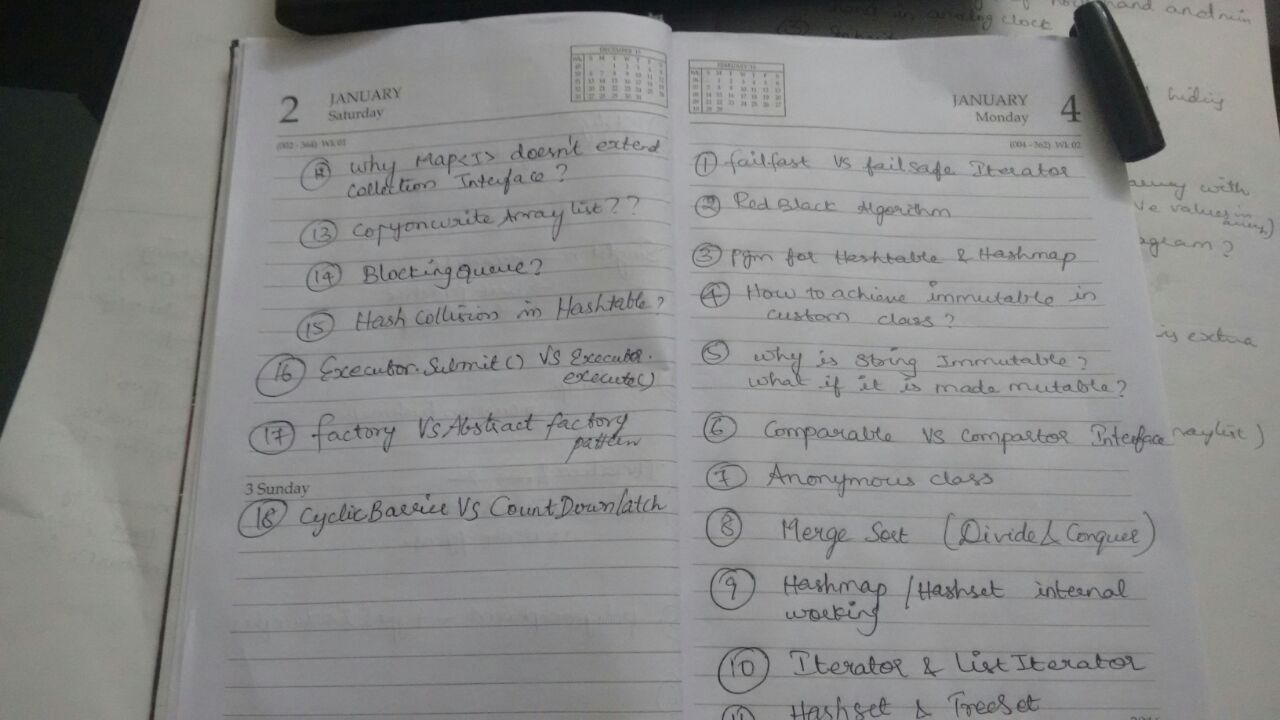 2 JANUARY
Saturday
DECEMBER 15
(002 - 364) Wk 01
12 Why Map<I> doesn't extend
Collection Interface?
13 Copyonwrite Array list??
14 Blocking queue?
15 Hash Collision in Hashtable?
16 Executor.Submit() VS Executor.
execute()
17 factory VS Abstract factory
pattern
3 Sunday
18 CyclicBarrier VS CountDownlatch
FEBRUARY 16
JANUARY 4
Monday
(004 - 362) Wk 02
1 failfast VS failsafe Iterator
2 Red Black Algorithm
3 pgm for Hashtable & Hashmap
4 How to achieve immutable in
custom class?
5 Why is String Immutable?
What if it is made mutable?
6 Comparable VS Compartor Interface
7 Anonymous class
8 Merge Sort (Divide & Conquer)
9 Hashmap / Hashset internal
working
10 Iterator & List Iterator
11 Hashset & TreeSet
hand and min
in analog clock
hiding
array with
ve values in
array)
ogram?
is extra
raylist)